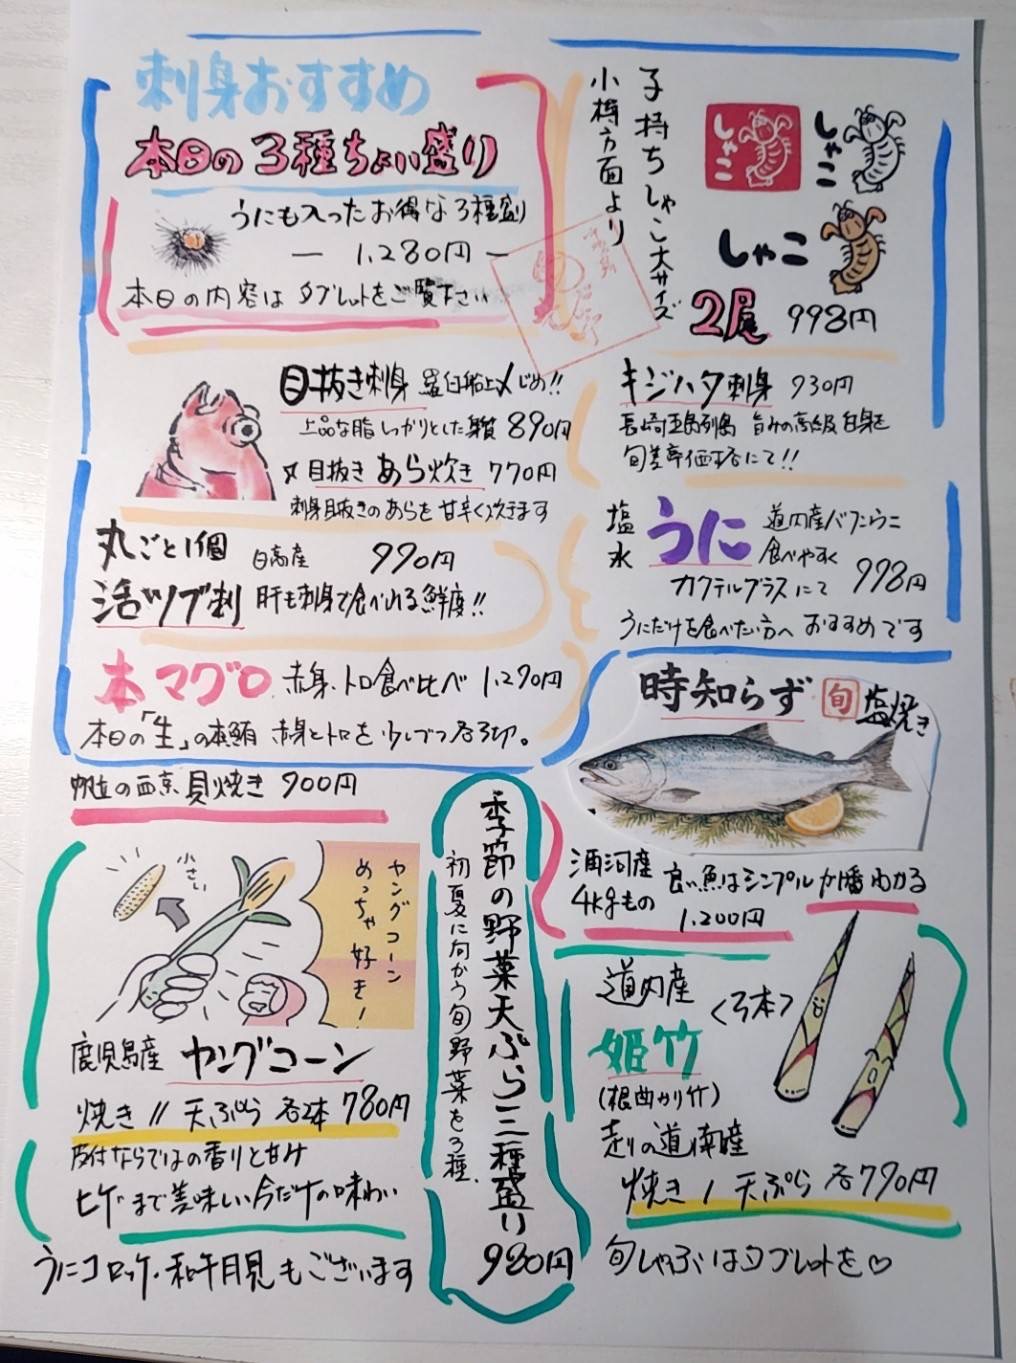 刺身おすすめ
本日の3種ちょい盛り
うにも入ったお得な3種盛り
― 1,280円 ―
本日の内容はタブレットをご覧下さい
子持ちしゃこ大サイズ
小樽方面より
しゃこ
しゃこ
しゃこ
2尾 998円
目抜き刺身 羅臼船上〆じめ!!
上品な脂しっかりとした身質 890円
〃目抜きあら炊き 770円
刺身目抜きのあらを甘辛く炊きます
キジハタ刺身 930円
長崎五島列島 旨みの高級白身を
旬差率価格にて!!
丸ごと1個 日高産 990円
活ツブ刺 肝も刺身で食べれる鮮度!!
塩水うに 道内産バフンウニ
食べやすく
カクテルグラスにて 998円
うにだけを食べたい方へおすすめです
本マグロ 赤身、トロ食べ比べ 1,290円
本日の「生」の本鮪 赤身とトロを少しづつ各3切。
帆立の西京貝焼き 900円
時知らず 旬 塩焼き
酒河産
4kgもの
良い魚はシンプルが1番わかる
1,200円
小さい
ヤングコーン
めっちゃ好き!
鹿児島産 ヤングコーン
焼き // 天ぷら 各2本 780円
皮付ならではの香りと甘み
ヒゲまで美味しい今だけの味わい
うにコロッケ・和牛月見もございます
季節の野菜天ぷら三種盛り
初夏に向かう旬野菜を3種.
980円
道内産
<3本>
姫竹
(根曲がり竹)
走りの道南産
焼き / 天ぷら 各790円
旬しゃぶはタブレットを♡